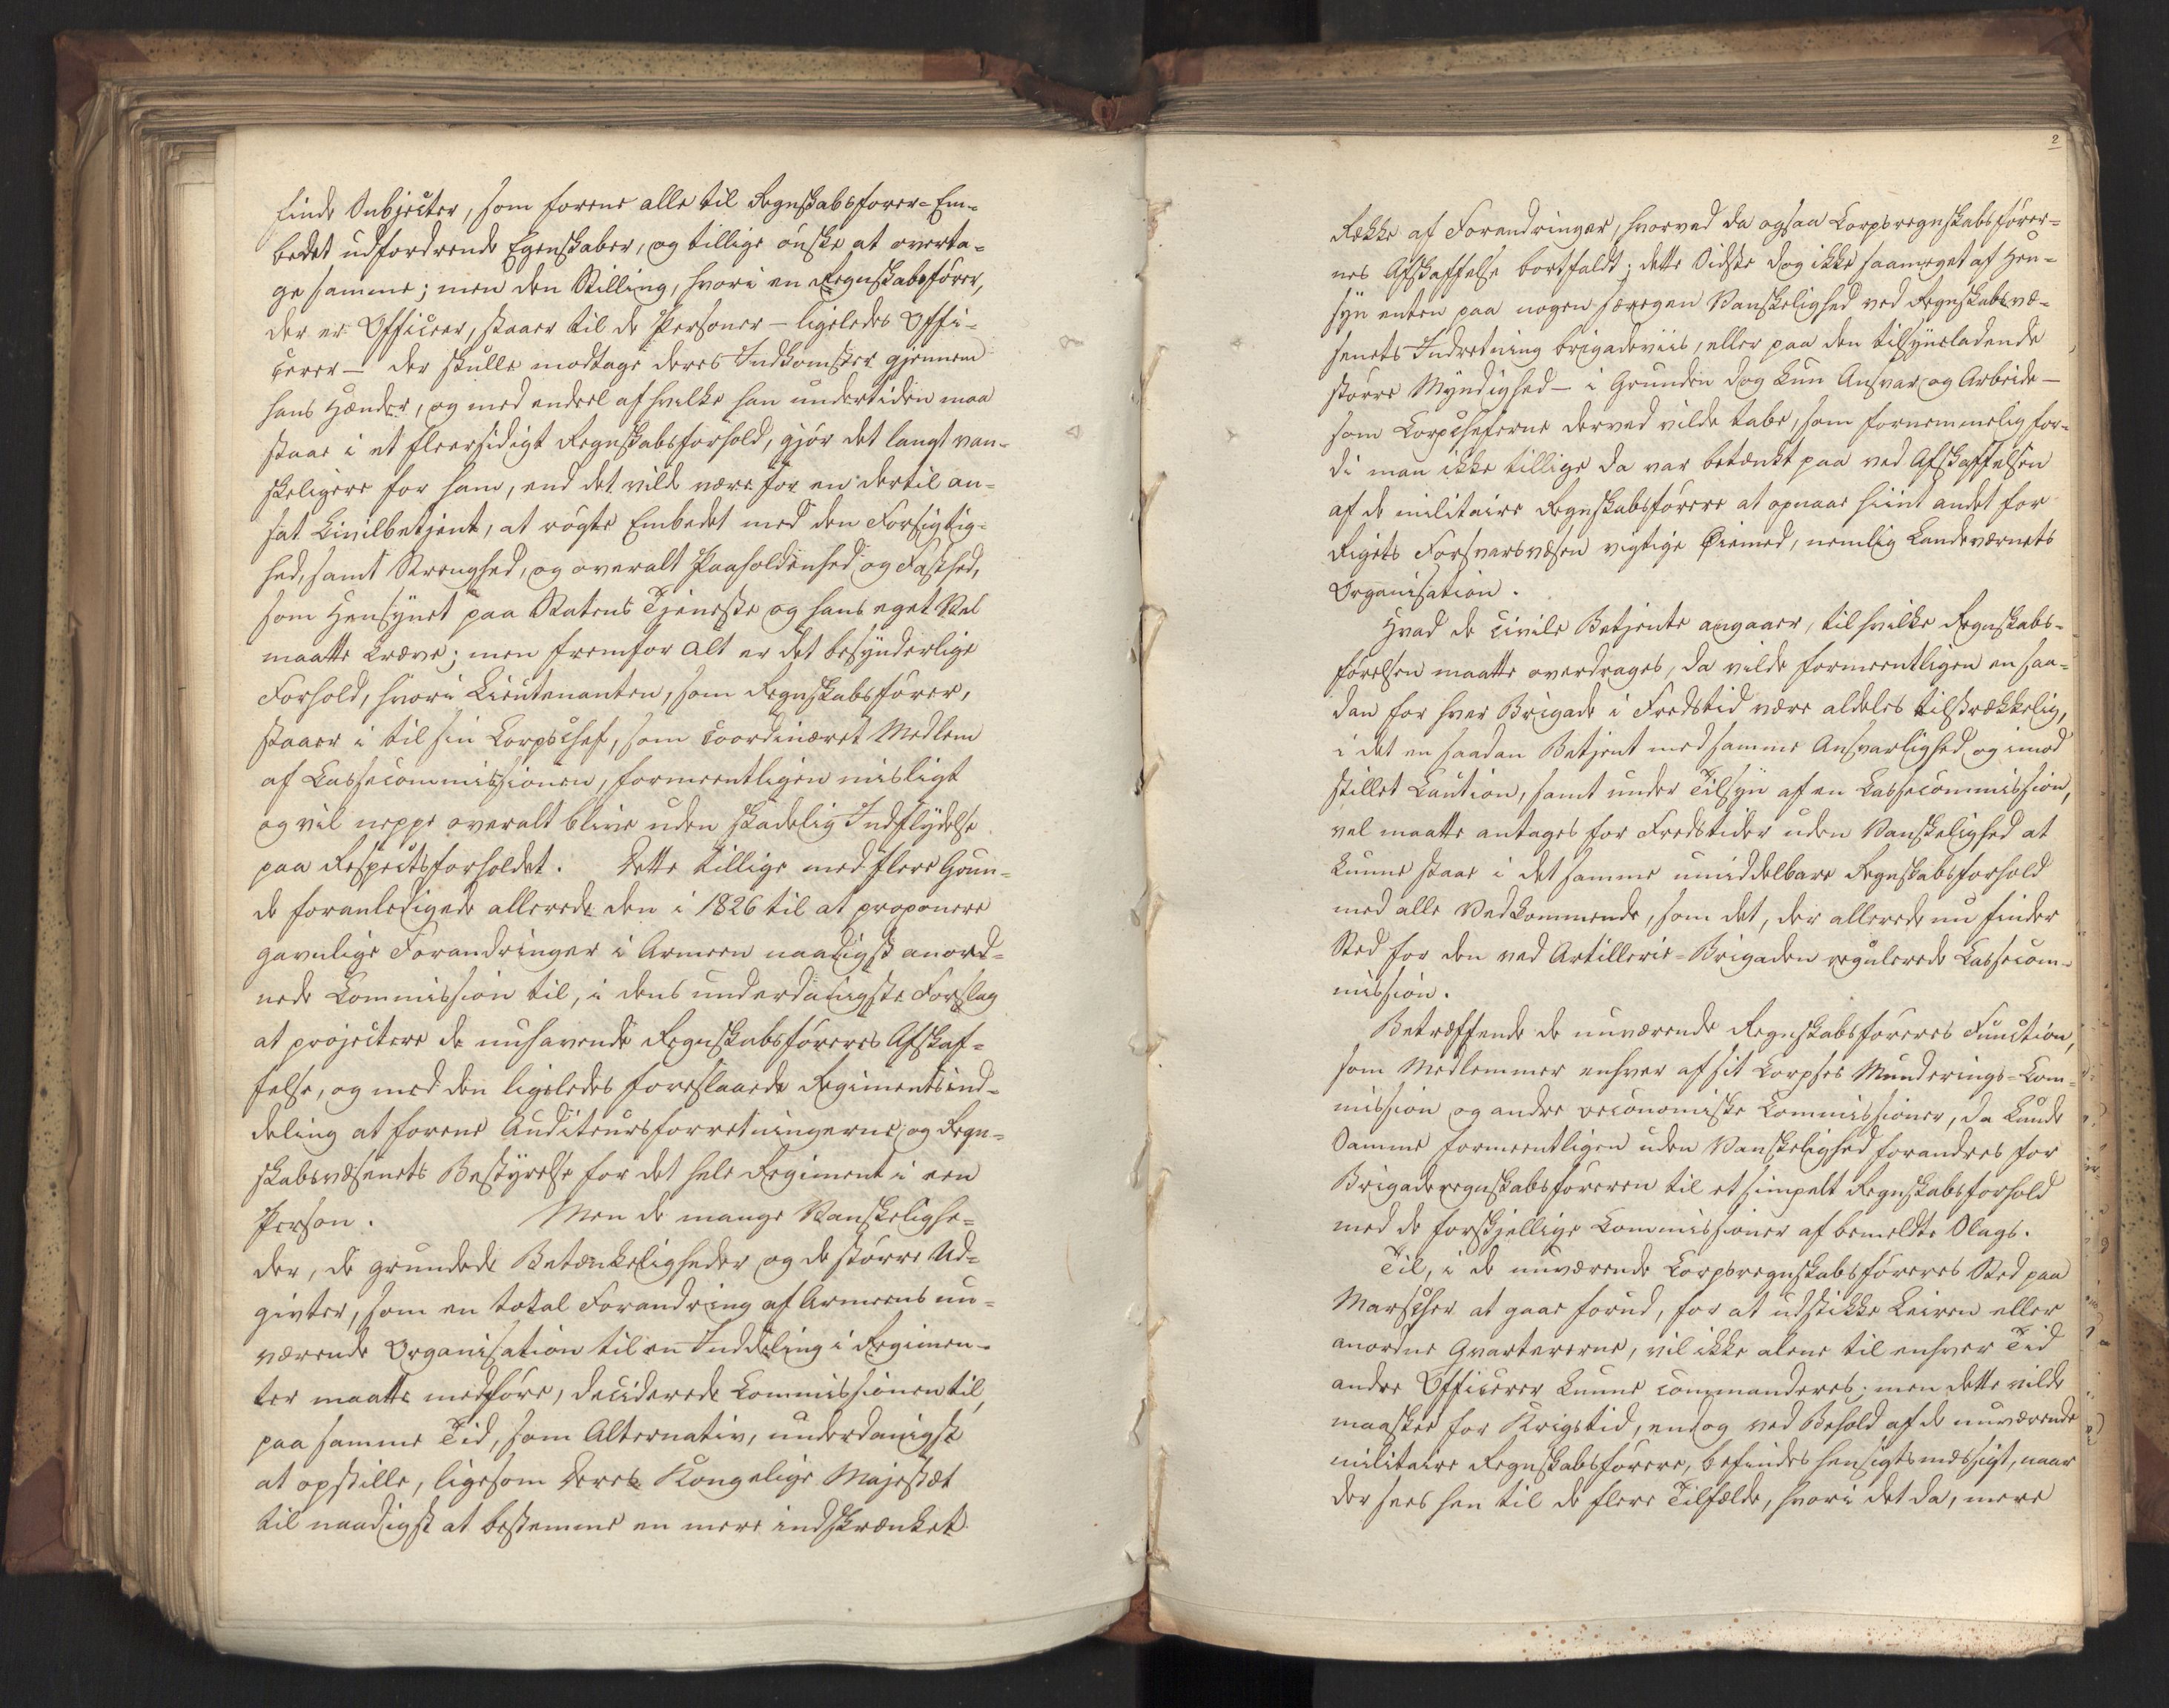 finde Subjecter, som forene alle til Regnskabsfører-Em-
bedet udfordrende Egenskaber, og tillige ønske at overta-
ge samme; men den Stilling, hvori en Regnskabsfører,
der er Officeer, staaer til de Personer – ligeledes Offi-
cerer – der skulle modtage deres Indkomster gjennem
hans Hænder, og med endeel af hvilke han undertiden maa
staae i et fleersidigt Regnskabsforhold, gjør det langt van-
skeligere for ham, end det vilde være for en dertil an-
sat Civilbetjent, at røgte Embedet med den Forsigtig-
hed, samt Strenghed, og overalt Paaholdenhed og Fasthed,
som Hensynet paa Statens Tjeneste og hans eget Vel
maatte kræve; men fremfor alt er det besynderlige
Forhold, hvori Lieutenanten, som Regnskabsfører,
staaer i til sin Corpschef, som coordineret Medlem
af Cassecommissionen, formeentligen misligt
og vil neppe overalt blive uden skadelig Indflydelse
paa Respectsforholdet. Dette tillige med flere Grun-
de foranledigede allerede den i 1826 til at proponere
gavnlige Forandringer i Armeen naadigst anord-
nede Commission til, i dens underdanigste Forslag
at projectere de nuhavende Regnskabsføreres Afskaf-
felse, og med den ligeledes foreslaaede Regimentsind-
deling at forene Auditeursforretningerne og Regn-
skabsvæsenets Bestyrelse for det hele Regiment i een
Person. Men de mange Vanskelighe-
der, de grundede Betænkeligheder og de større Ud-
givter, som en total Forandring af Armeens nu-
værende Organisation til en Inddeling i Regimen-
ter maatte medføre, deciderede Commissionen til,
paa samme Tid, som Alternativ, underdanigst
at opstille, ligesom Deres Kongelige Majestæt
til naadigst at bestemme en mere indskrænket
2
Række af Forandringer, hvorved da ogsaa Corpsregnskabsfører-
nes Afskaffelse bortfaldt; dette Sidste dog ikke saameget af Hen-
syn enten paa nogen særegen Vanskelighed ved Regnskabsvæ-
senets Indretning brigadeviis, eller paa den tilsyneladende
større Myndighed – i Grunden dog kun Ansvar og Arbeide –
som Corpscheferne derved vilde tabe, som fornemmelig for-
di man ikke tillige da var betænkt paa ved Afskaffelsen
af de militaire Regnskabsførere at opnaae hiint andet for
Rigets Forsvarsvæsen vigtige Øiemed, nemlig Landeværnets
Organisation.
Hvad de civile Betjente angaaer, til hvilke Regnskabs-
førelsen maatte overdrages, da vilde formeentligen en saa-
dan for hver Brigade i Fredstid være aldeles tilstrækkelig,
i det en saadan Betjent med samme Ansvarlighed og imod
stillet Caution, samt under Tilsyn af en Cassecommission,
vel maatte antages for Fredstider uden Vanskelighed at
kunne staae i det samme umiddelbare Regnskabsforhold
med alle Vedkommende, som det, der allerede nu finder
Sted for den ved Artillerie-Brigaden regulerede Cassecom-
mission.
Betræffende de nuværende Regnskabsføreres Function,
som Medlemmer enhver af sit Corpses Munderings-Com-
mission og andre oeconomiske Commissioner, da kunde
Samme formeentligen uden Vanskelighed forandres for
Brigaderegnskabsføreren til et simpelt Regnskabsforhold
med de forskjellige Commissioner af bemeldte Slags.
Til, i de nuværende Corpsregnskabsføreres Sted paa
Marscher at gaae forud, for at udstikke Leiren eller
anordne Qvartererne, vil ikke alene til enhver Tid
andre Officerer kunne commanderes; men dette vilde
maaskee for Krigstid, endog ved Behold af de nuværende
militaire Regnskabsførere, befindes hensigtsmæssigt, naar
der sees hen til de flere Tilfælde, hvori det da, mere